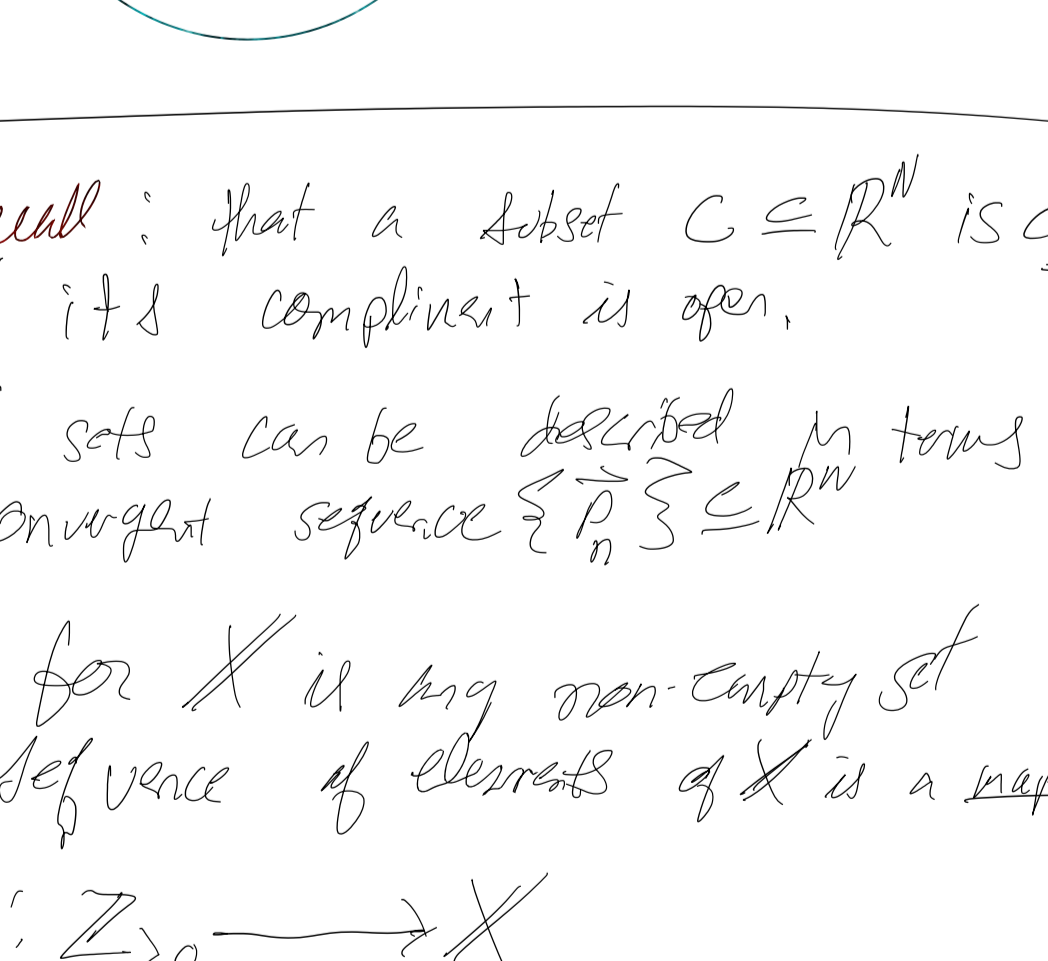 ecall : that a subset C ⊆ ℝ^N is c
its compliment is open.
sets can be described in terms
onvergent sequence {p⃗_n} ⊆ ℝ^N
for X is any non-empty set
sequence of elements of X is a map
: ℤ_>0 ⟶ X